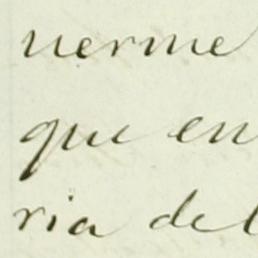 uerme
que en
ria del